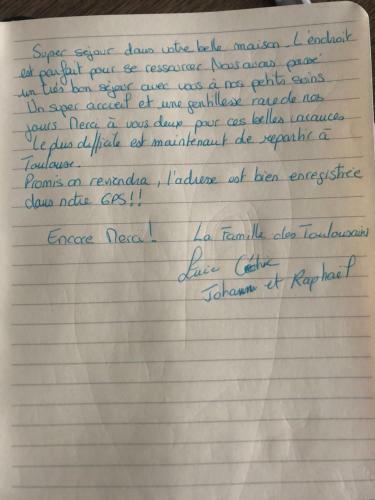 Super séjour dans votre belle maison. L'endroit
est parfait pour se ressourcer. Nous avons passé
un très bon séjour avec vous à nos petits soins
Un super accueil et une gentillesse rare de nos
jours. Merci à vous deux pour ces belles vacances
Le plus difficile est maintenant de repartir à
Toulouse.
Promis on reviendra, l'adresse est bien enregistrée
dans notre GPS!!
Encore Merci! La Famille des Toulousains
Johann et Raphaël